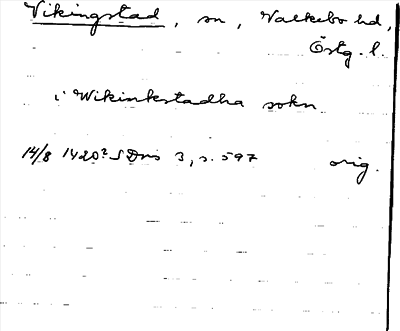 Vikingstad, sn, Valkebo hd,
Östg. l.
i Wikinkstadha sokn
14/8 1420? SDns 3, s. 597 orig.